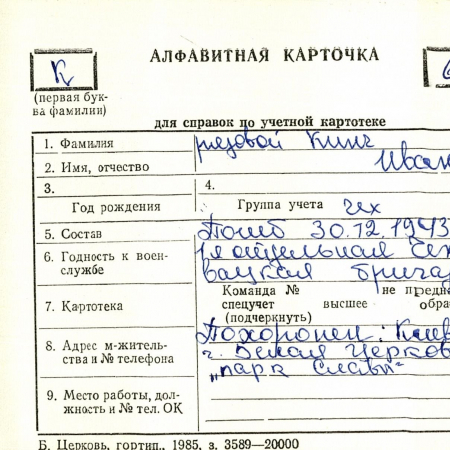 К
АЛФАВИТНАЯ КАРТОЧКА
(первая бук-
ва фамилии)
для справок по учетной картотеке
1. Фамилия рядовой Кинч
2. Имя, отчество Иван
3. 4.
Год рождения Группа учета чех
5. Состав Погиб 30.12.1943
6. Годность к воен-
службе
1я отдельная Чех
вацкая брига
7. Картотека Команда № не предна
спецучет высшее обра
(подчеркнуть)
8. Адрес м-житель-
ства и № телефона
Похоронен: Киев
г. Белая Церков
„парк Славы"
9. Место работы, дол-
жность и № тел. ОК
Б. Церковь, гортип., 1985, з. 3589—20000